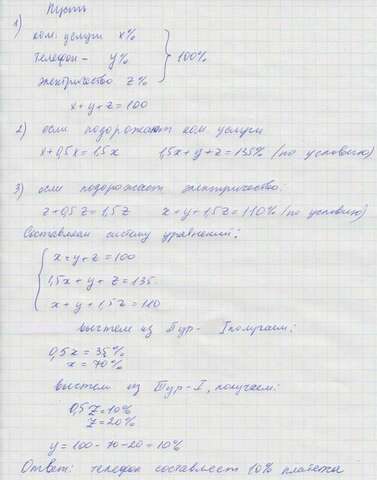 Пусть
1)
ком. услуги x%
телефон – y% } 100%
электричество z%
x+y+z=100
2) если подорожают ком. услуги
x+0,5x=1,5x 1,5x+y+z=135% /по условию)
3) если подорожает электричество:
z+0,5z=1,5z x+y+1,5z=110% /по условию)
Составляем систему уравнений:
{ x+y+z=100
1,5x+y+z=135
x+y+1,5z=110
вычтем из II ур- I получаем:
0,5x=35%
x=70%
вычтем из III ур-I, получаем:
0,5z=10%
z=20%
y=100-70-20=10%
Ответ: телефон составляет 10% платежа